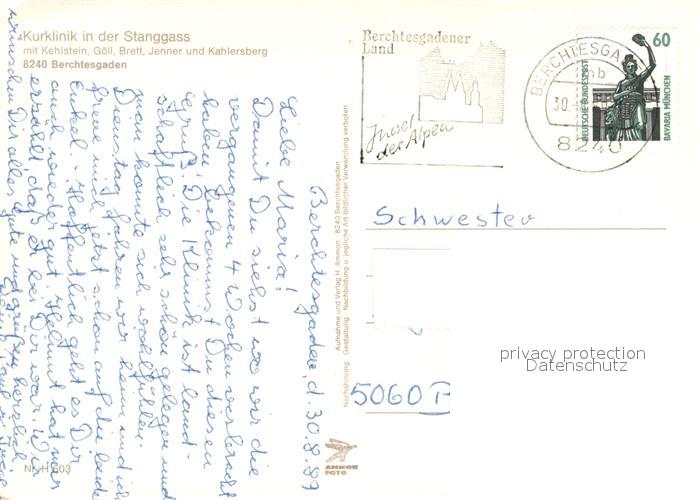 Kurklinik in der Stanggass
mit Kehlstein, Göll, Brett, Jenner und Kahlersberg
8240 Berchtesgaden
Berchtesgaden, d. 30.8.89
Liebe Maria!
Damit Du siehst wo wir die
vergangenen 4 Wochen verbracht
haben, bekommst Du diesen
Gruß. Die Klinik ist land-
schaftlich sehr schön gelegen und
man konnte sich wohlfühlen.
Dienstag fahren wir heim und ich
freue mich jetzt schon auf die beiden
Enkel. Hoffentlich geht es Dir
auch wieder gut. Helmut hat mir
erzählt daß er bei Dir war. Wir
wünschen Dir alles Gute und grüßen herzlich
Nr. H 603
Aufnahme und Verlag H. Ammon, 8240 Berchtesgaden
Nachahmung, Gestaltung, Nachbildung u. jegliche Art bildlicher Verwendung verboten
AMMON
FOTO
Berchtesgadener
Land
Insel
der Alpen
BERCHTESGADEN
mb
30.
8240
60
DEUTSCHE BUNDESPOST
BAVARIA MÜNCHEN
Schwester
5060 B
privacy protection
Datenschutz